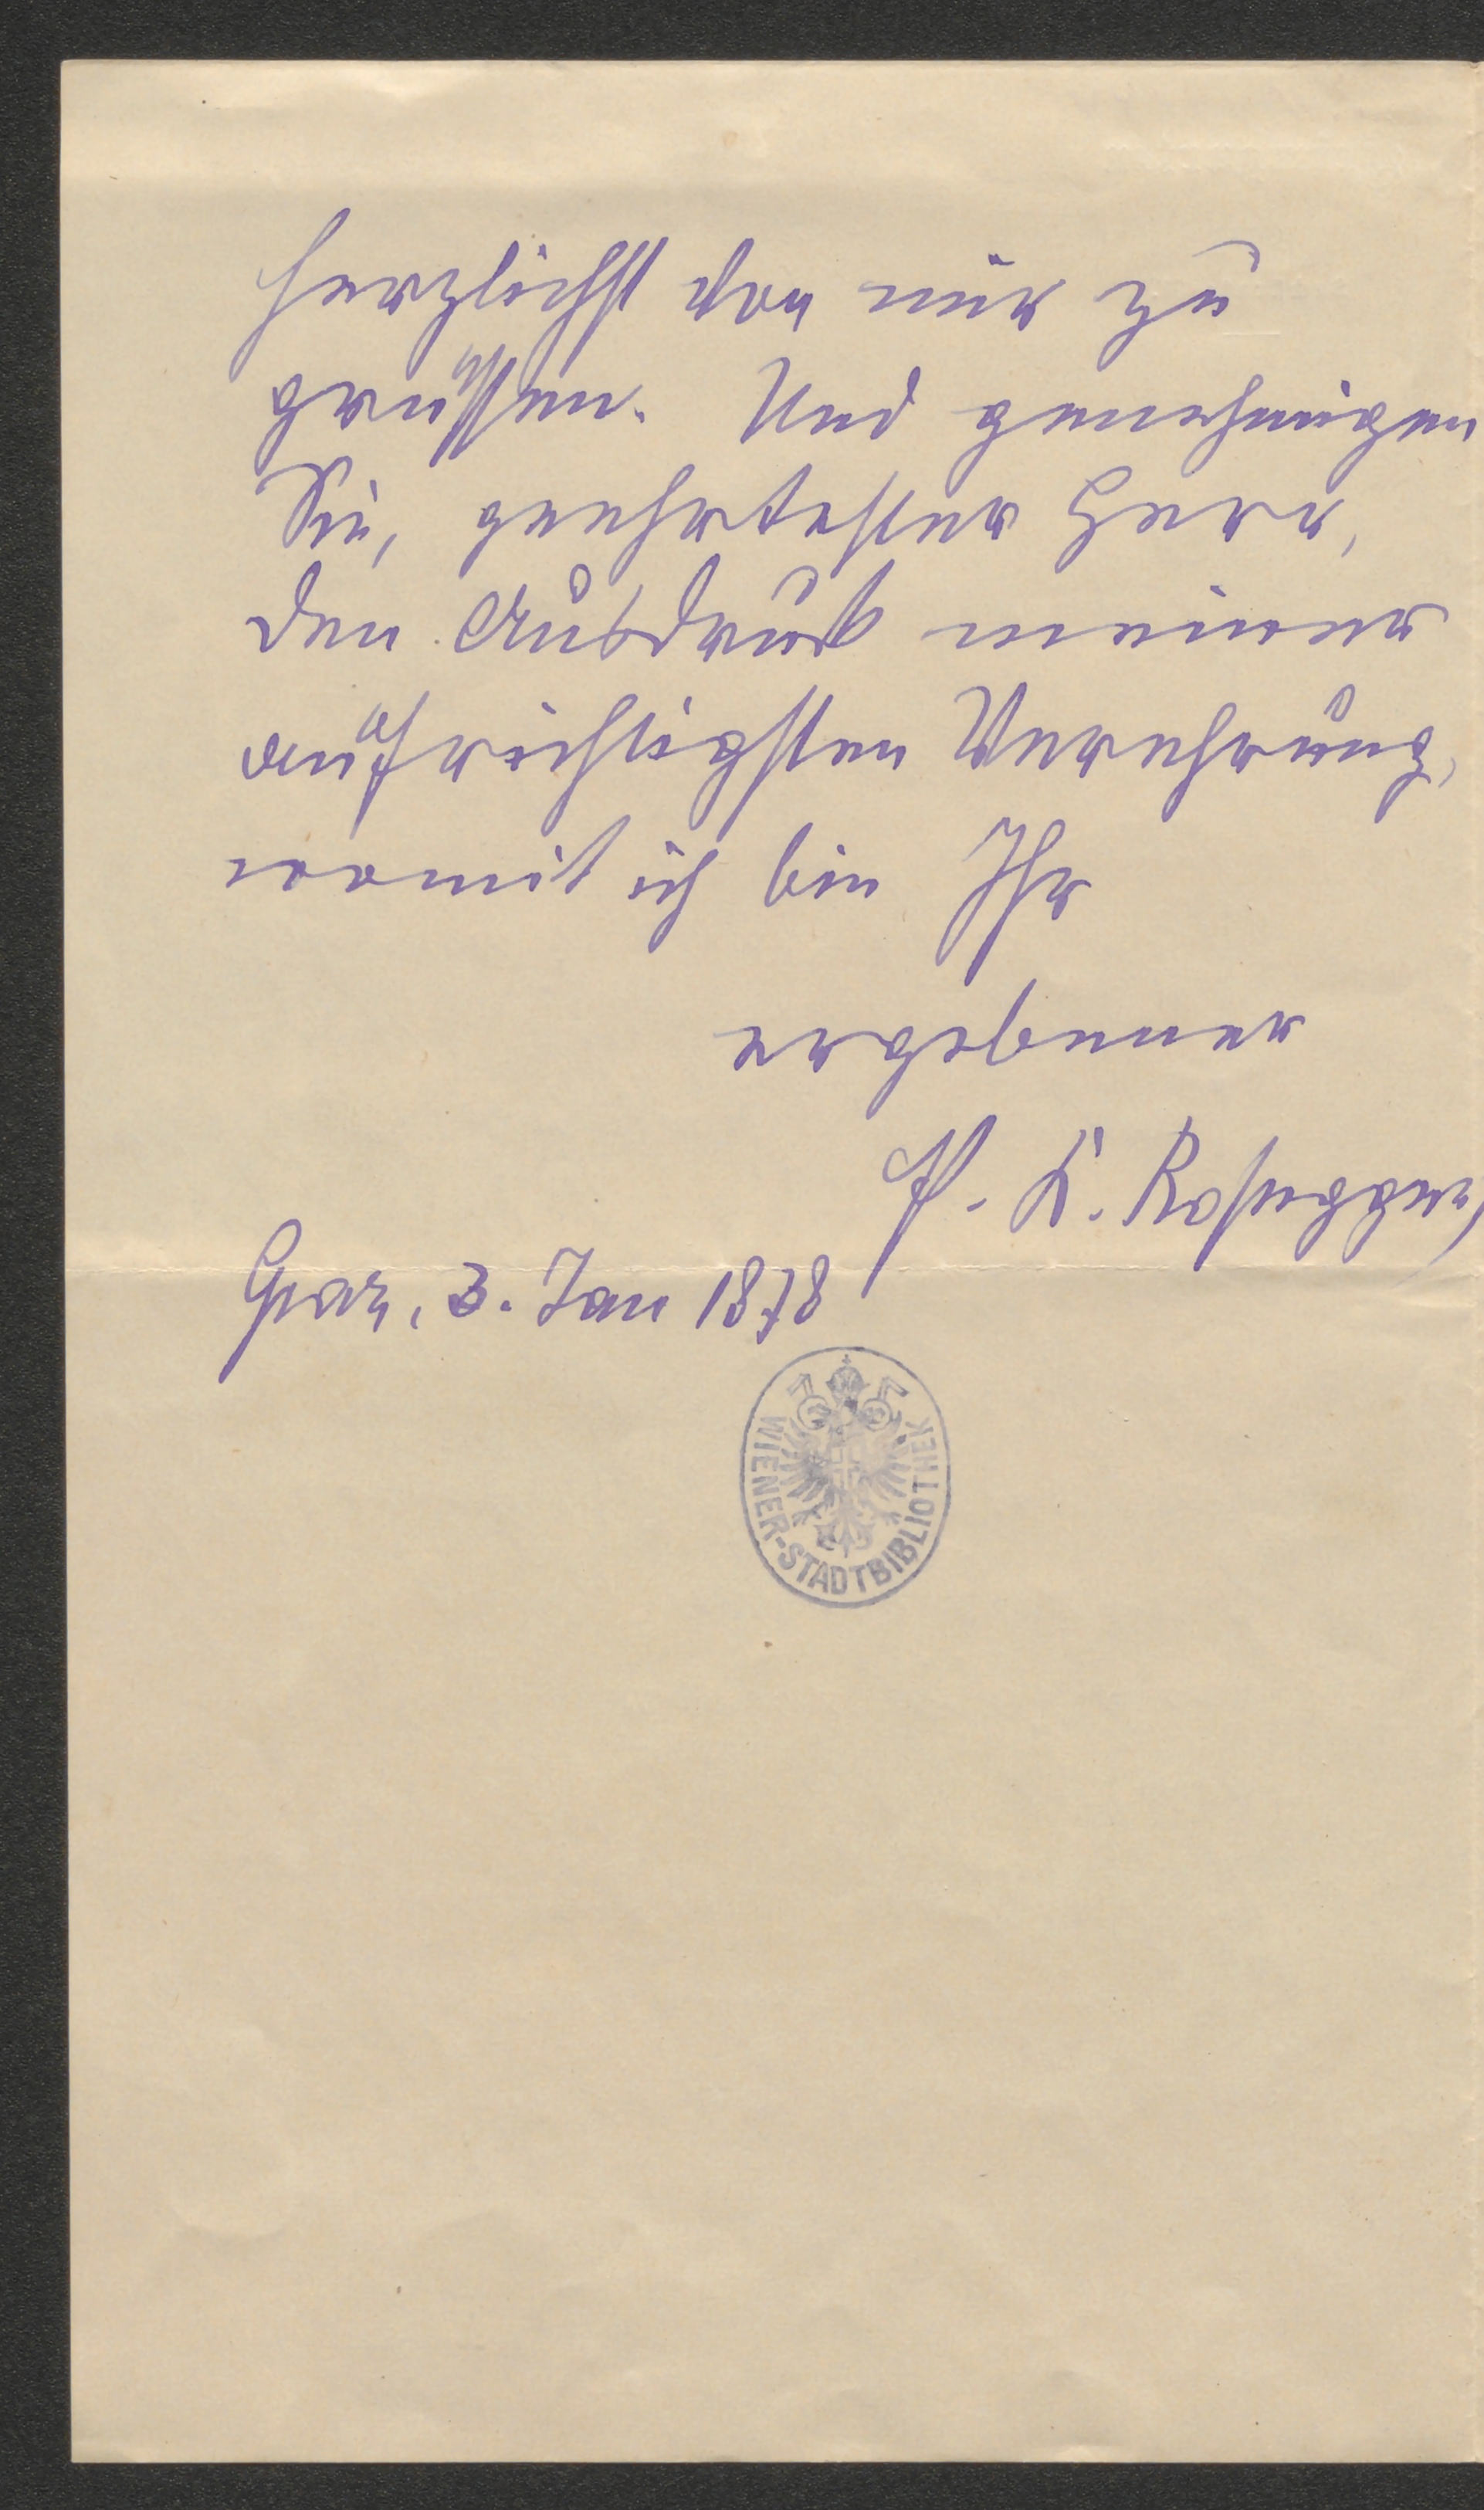 herzlichst von mir zu
grüssen. Und genehmigen
Sie, geehrtester Herr,
den Ausdruck meiner
aufrichtigsten Verehrung,
womit ich bin Ihr
ergebener
P. K. Rosegger
Graz, 3. Jan 1878
WIENER-STADTBIBLIOTHEK